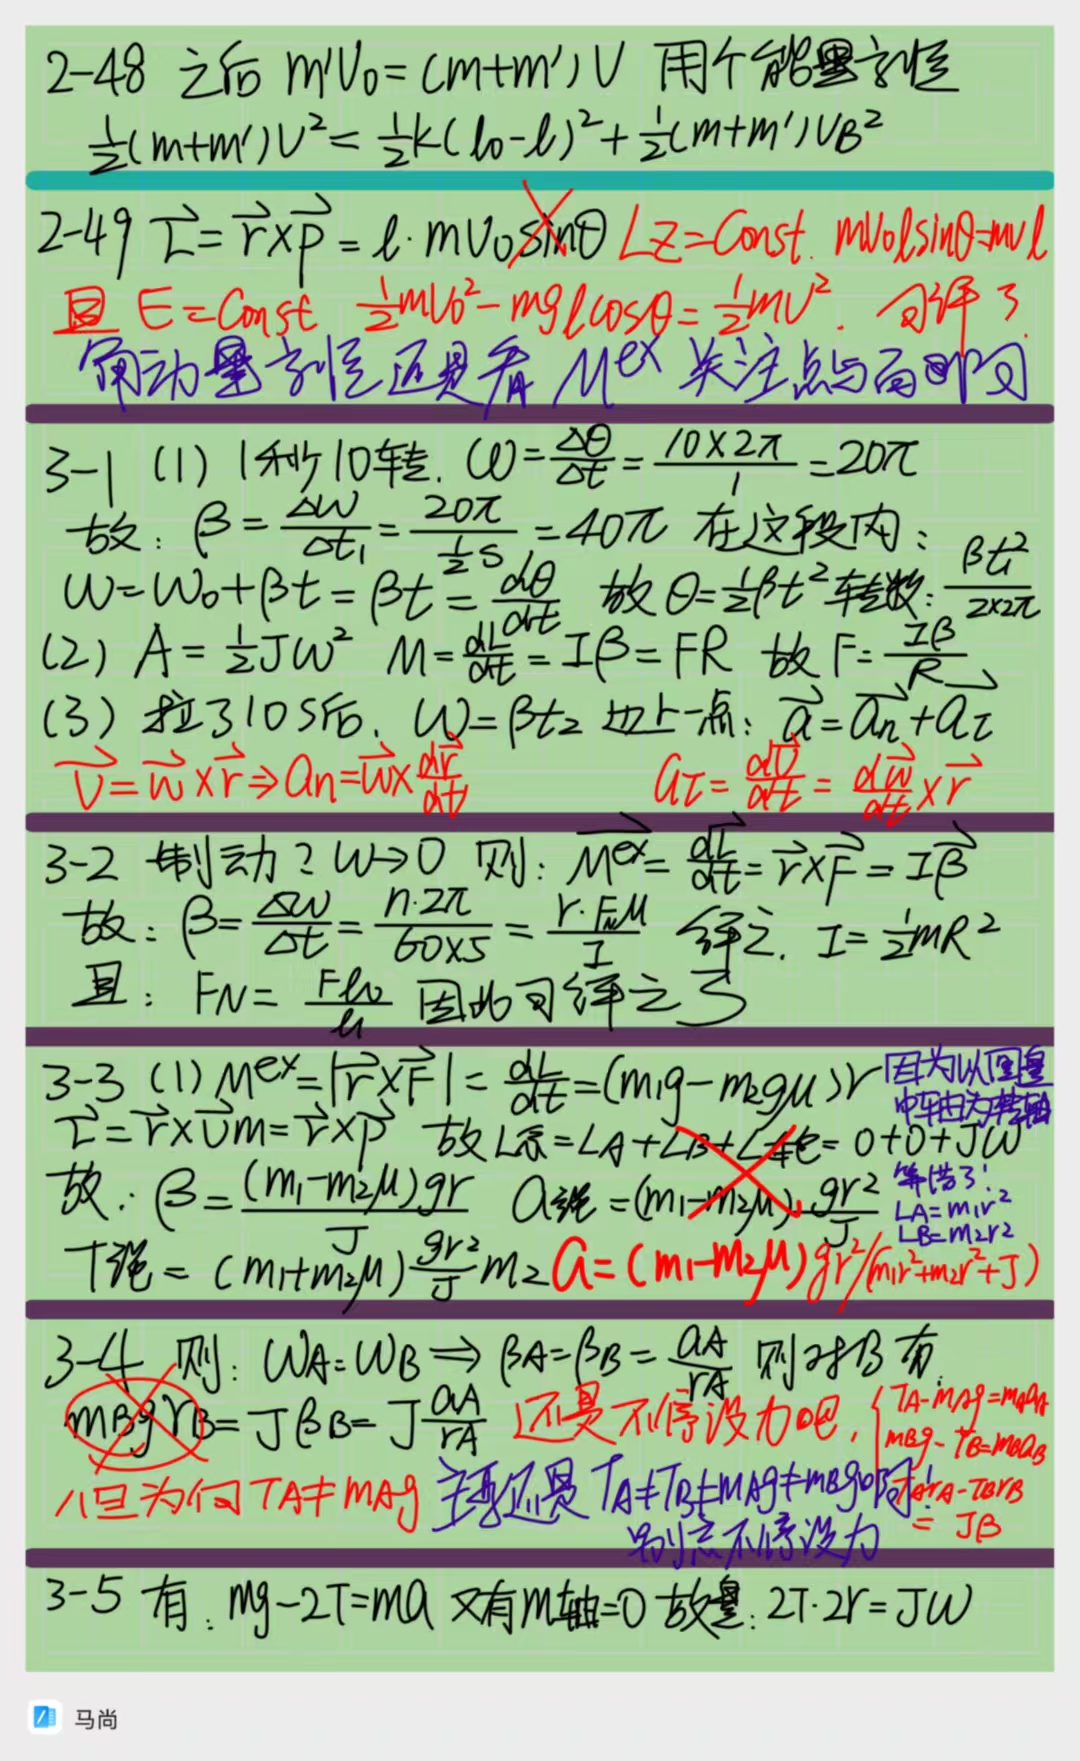 2-48 之后 m'V₀=(m+m')V 用个能量守恒
½(m+m')V²=½k(l₀-l)²+½(m+m')VB²
2-49 L⃗=r⃗×p⃗=l·mV₀sinθ LZ=Const. mV₀lsinθ=mvl
且 E=Const ½mV₀²-mglcosθ=½mV². 可解了.
角动量守恒还是看 M^ex 关注点与面
3-1 (1) 1秒10转. ω=Δθ/Δt=10×2π/1=20π
故: β=Δω/Δt₁=20π/½s=40π 在这段内:
ω=ω₀+βt=βt=dθ/dt 故θ=½βt² 转数:βt₁²/2×2π
(2) A=½Jω² M=dL/dt=Iβ=FR 故F=Iβ/R
(3) 拉了10s后. ω=βt₂ 边上一点: a⃗=a⃗n+a⃗τ
v⃗=ω⃗×r⃗⇒an=ω⃗×dr⃗/dt aτ=dv⃗/dt=dω⃗/dt×r⃗
3-2 制动?ω→0 则: M⃗^ex=dL⃗/dt=r⃗×F⃗=Iβ⃗
故: β=Δω/Δt=n·2π/60×5=r·FNμ/I 解之. I=½mR²
且: FN=Fl₀/l₁ 因此可解之了
3-3 (1) M^ex=|r⃗×F⃗|=dL/dt=(m₁g-m₂gμ)r 因为以圆盘
中轴为转轴
L⃗=r⃗×v⃗m=r⃗×p⃗ 故L总=LA+LB+L轮=0+0+Jω
故: β=(m₁-m₂μ)gr/J a绳=(m₁-m₂μ)gr²/J 等错了!
LA=m₁r²
LB=m₂r²
T绳=(m₁+m₂μ)gr²/J m₂ a=(m₁-m₂μ)gr²/(m₁r²+m₂r²+J)
3-4 则: ωA=ωB⇒βA=βB=aA/rA 则对B有.
mBgrB=JβB=J aA/rA 还是不信设力吧, {TA-mAg=mAaA
mBg-TB=mBaB
TArA-TBrB
=Jβ
但为何TA≠mAg 主要还是TA≠TB≠mAg≠mBg
别忘不信设力
3-5 有: mg-2T=ma 又有m轴=0 故是: 2T·2r=Jω
马尚